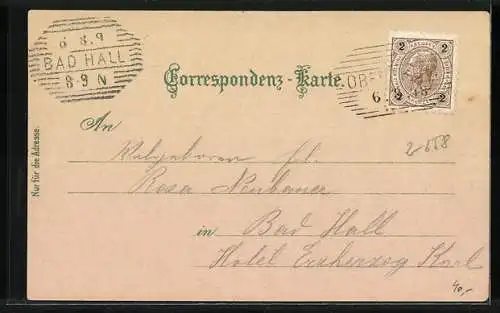 6 8.9
BAD HALL
8-9 N
Correspondenz-Karte.
OBER
6
2 2
2 2
Nur für die Adresse.
An
Wolgeboren Frl.
Rosa Neubauer
in Bad Hall
Hotel Erzherzog Karl
40,-